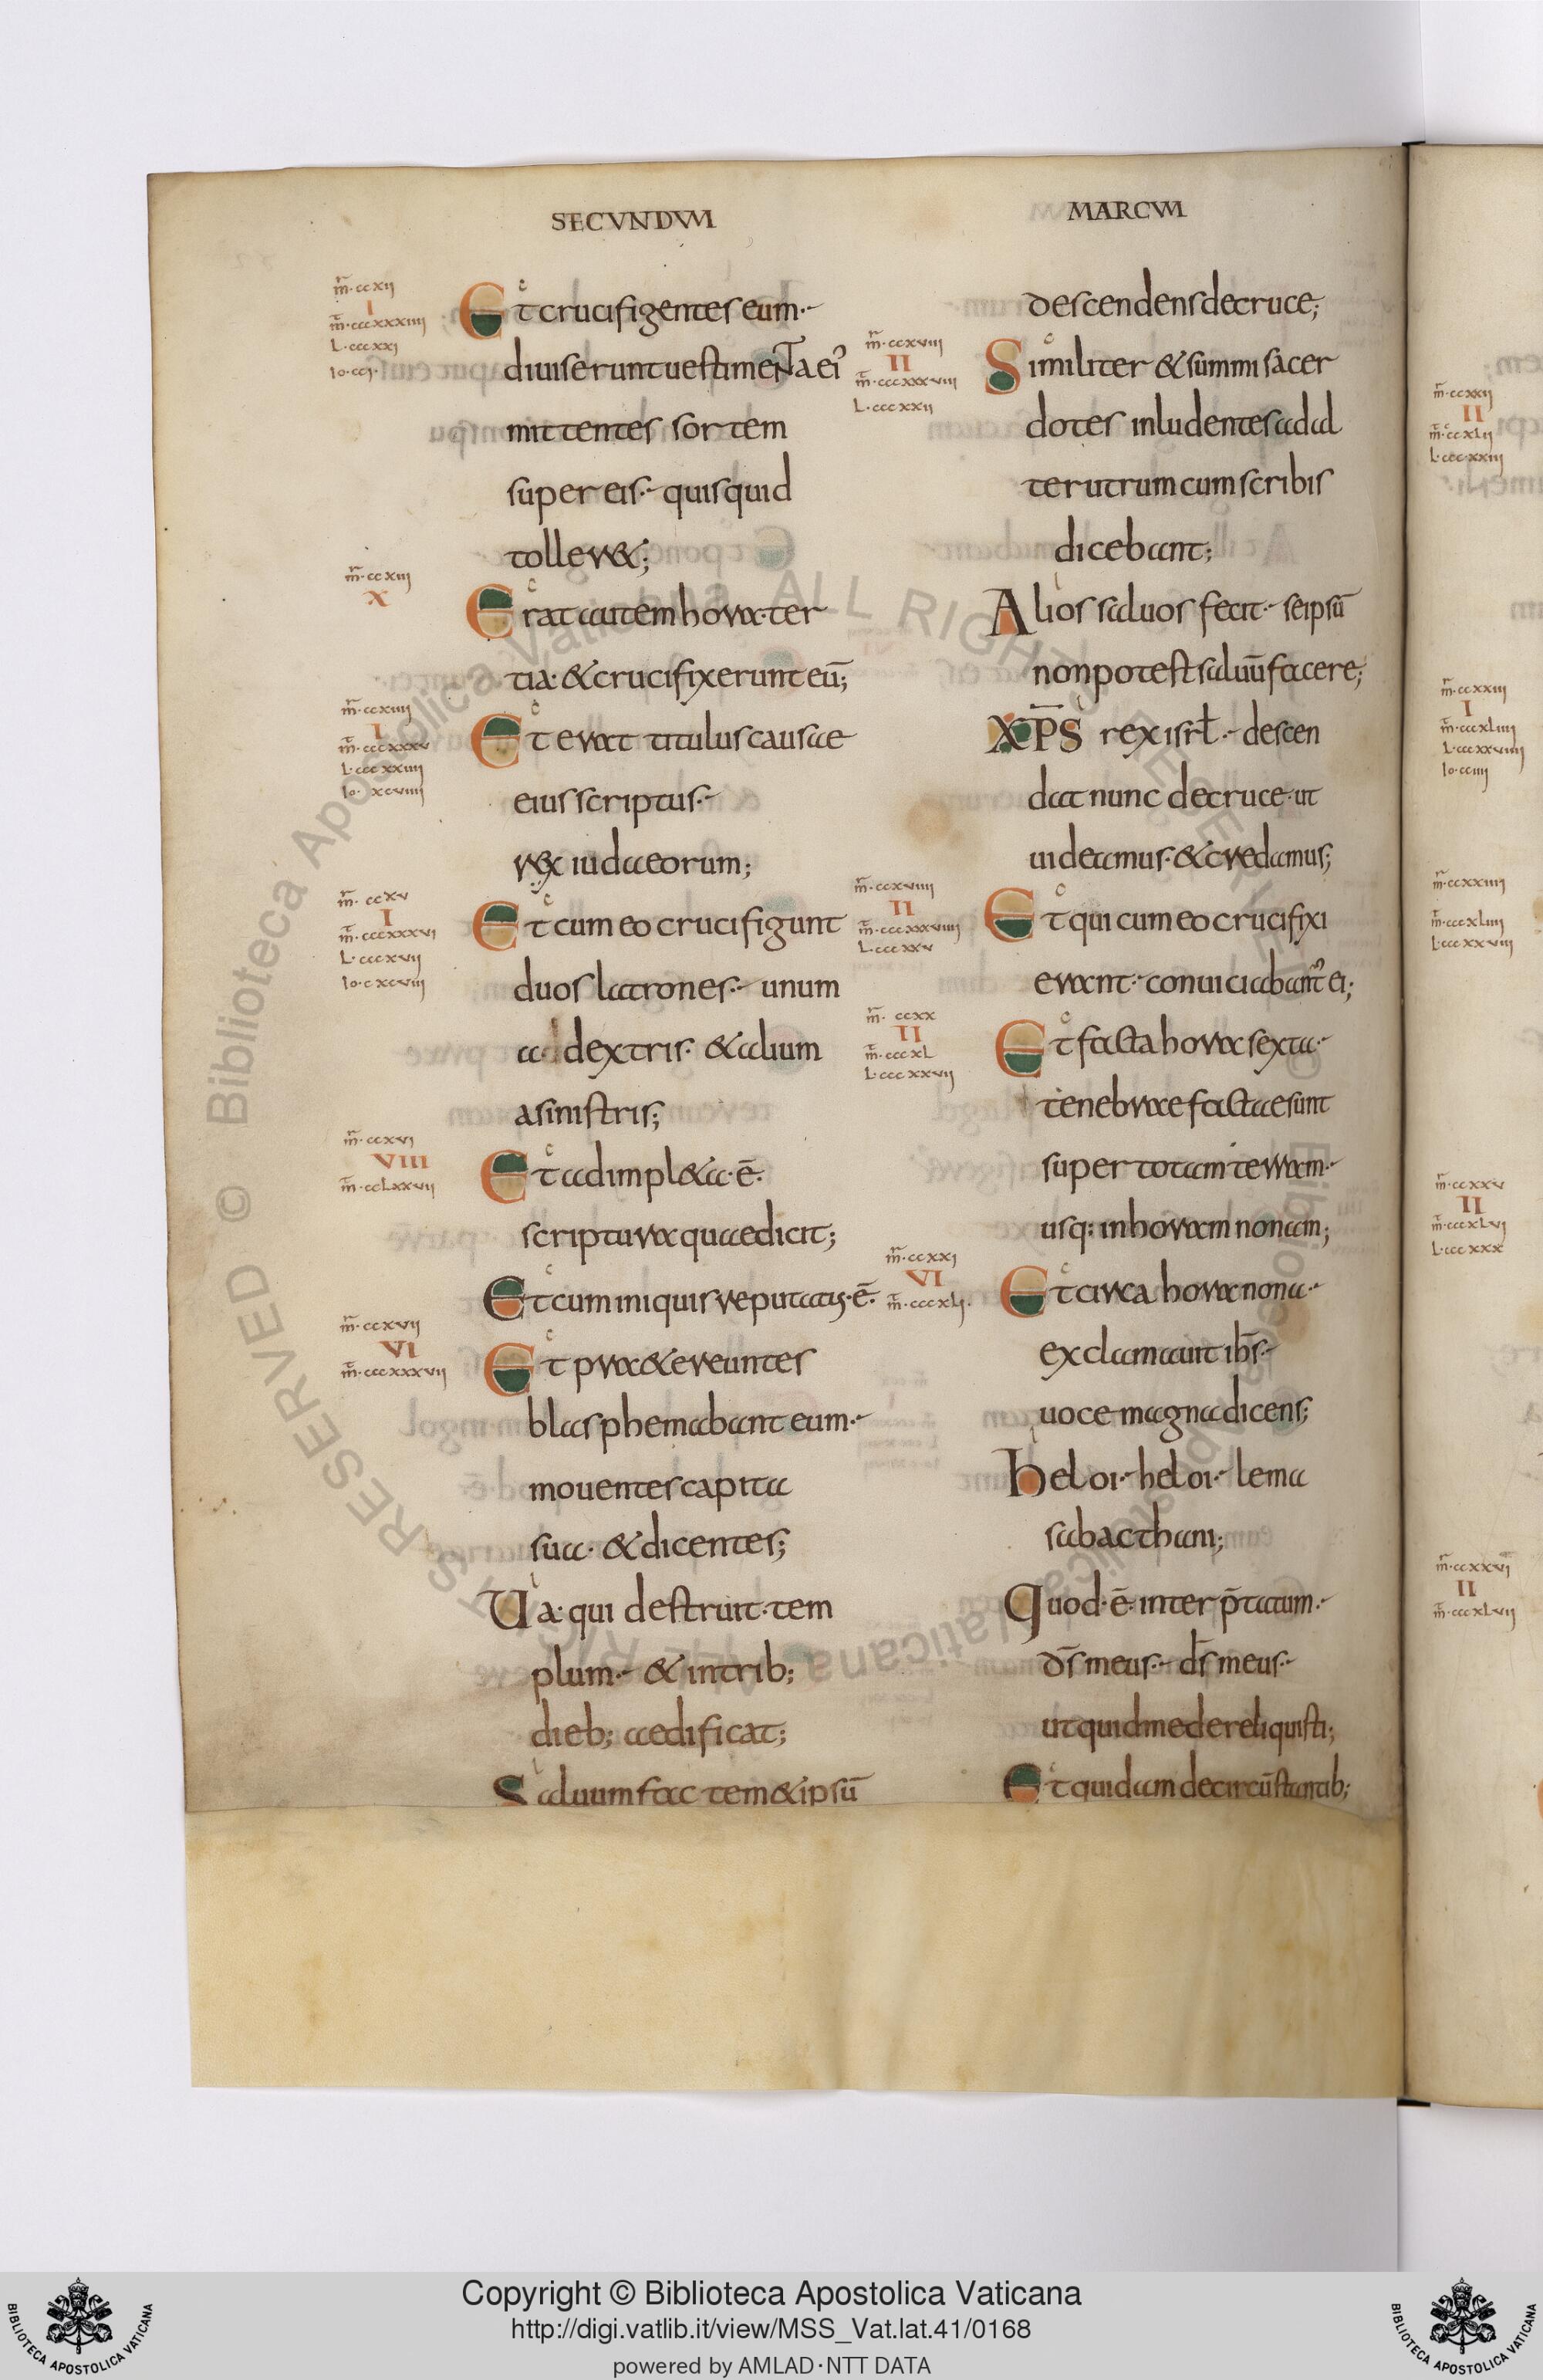 SECUNDUM
MARCUM
m̄·ccxii
I
m̄·cccxxxiiii
L·cccxxi
Io·cci·
Et crucifigentes eum·
diuiserunt uestimenta ei᾽
mittentes sortem
super eis·quisquid
tolleret;
m̄·ccxiii
X
Erat autem hora·ter
tia·&crucifixerunt eū;
m̄·ccxiiii
I
m̄·cccxxxv
L·cccxxiiii
Io·xcviiii
Et erat titulus causae
eius scriptus·
rex iudaeorum;
m̄·ccxv
I
m̄·cccxxxvi
L·cccxvii
Io·cxcviii
Et cum eo crucifigunt
duos latrones·unum
a dextris·&alium
asinistris;
m̄·ccxvi
VIII
m̄·cclxxvii
Et adimpl&a·ē·
scriptura quaedicit;
Et cum iniquis reputatus·ē·
m̄·ccxvii
VI
m̄·cccxxxvii
Et pra&ereuntes
blasphemabant eum·
mouentes capita
sua·&dicentes;
Ua·qui destruit·tem
plum·&intrib;
dieb; aedificat;
Saluum fac tem&ipsū
descendens decruce;
m̄·ccxviii
II
m̄·cccxxxviii
L·cccxxii
Similiter &summi sacer
dotes inludentes adal
terutrum cum scribis
dicebant;
Alios saluos fecit·seipsū
non potest saluū facere;
XP̄S rex isrł·descen
dat nunc decruce·ut
uideamus·&credamus;
m̄·ccxviiii
II
m̄·cccxxxviiii
L·cccxxv
Et qui cum eo crucifixi
erant·conuiciabant᾽ ei;
m̄·ccxx
II
m̄·cccxl
L·cccxxvii
Et facta hora sexta·
tenebrae factae sunt
super totam terram·
usq: in horam nonam;
m̄·ccxxi
VI
m̄·cccxli·
Et circa hora nona·
exclamauit ih̄s·
uoce magna dicens;
heloi·heloi·lema
sabacthani;
Quod·ē·inter p̄tatum·
d̄s meus·d̄s meus·
utquid me dereliquisti;
Et quidam decircūstantib;
m̄·ccxxii
II
m̄·ccxlii
L·cccxxiii
m̄·ccxxiii
I
m̄·cccxliii
L·cccxxviiii
Io·cciiii
m̄·ccxxiiii
m̄·cccxliiii
L·cccxxviii
m̄·ccxxv
II
m̄·cccxlvi
L·cccxxx
m̄·ccxxvi
II
m̄·cccxlvii
© Biblioteca Apostolica Vaticana ALL RIGHTS RESERVED
Copyright © Biblioteca Apostolica Vaticana
http://digi.vatlib.it/view/MSS_Vat.lat.41/0168
powered by AMLAD·NTT DATA
BIBLIOTECA APOSTOLICA VATICANA
BIBLIOTECA APOSTOLICA VATICANA